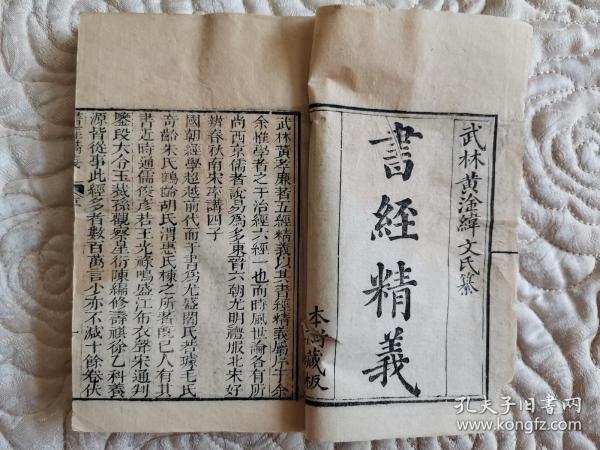 武林黄淦緯文氏纂
書經精義
本衙藏板
武林黃孝廉著五經精義以其書經精義屬序于余
余惟學者之于治經六經一也而時風世論各有所
尚西京儒者說易為多東晉六朝尤明禮服北宋好
辨春秋南宋專講四子
國朝經學超越前代而于書為尤盛閻氏若璩毛氏
奇齡朱氏鶴齡胡氏渭惠氏棟之所著既已人有其
書近時通儒俊彥若王光祿鳴盛江布衣聲宋通判
鑒段大令玉裁孫觀察星衍陳編修壽祺徐乙科養
源皆從事此經多者數百萬言少亦不減十餘卷伏
書經精義
孔夫子旧书网
www.kongfz.com